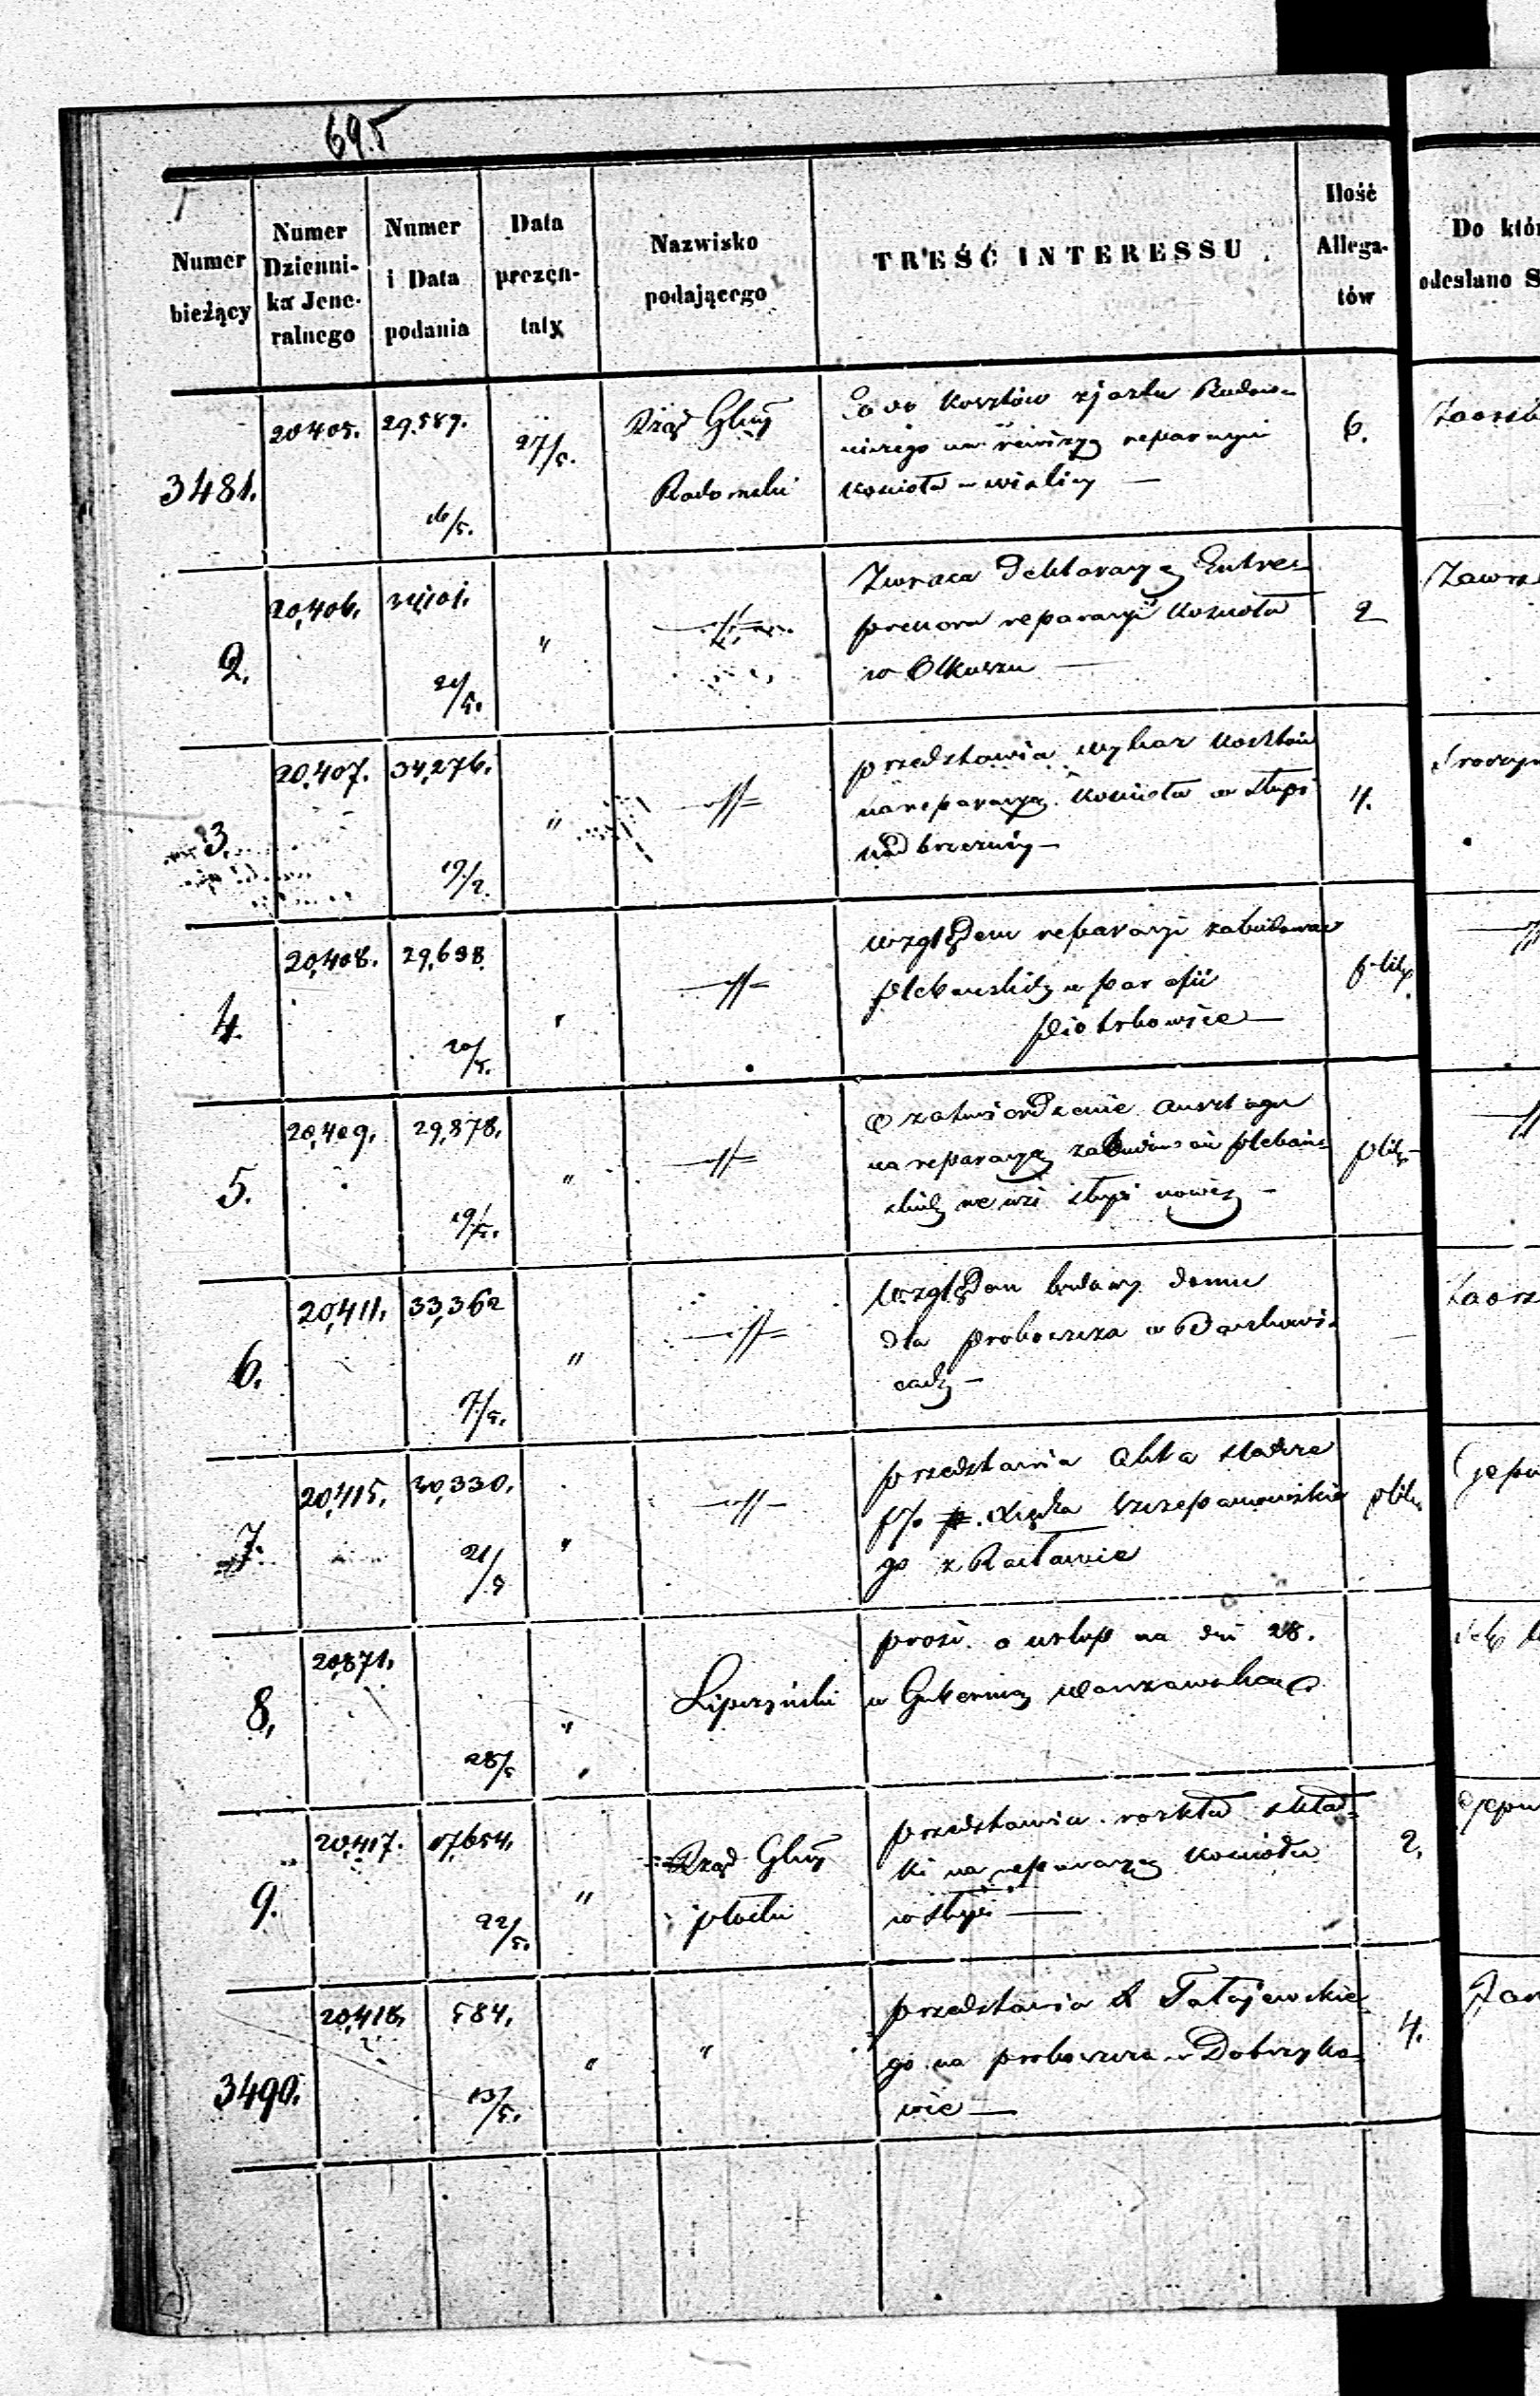 695
Numer bieżący
Numer Dziennika Jeneralnego
Numer i Data podania
Data prezentaty
Nazwisko podającego
TREŚĆ INTERESSU
Ilość Allegatów
Do któr
odesłano S
3481. 20405. 29.589. 16/5. 27/5. Rząd Gbny Radomski
Co do kosztów zjazdu Budow-
niczego na rewizyą reparacyi
Kościoła w Wiślicy —
6.
2. 20,406. 21/5. "
Zwraca Deklaracyą Entre-
prenera reparacyi Kościoła
w Olkuszu —
2
Zawr
3. 20,407. 34,276. 19/2. "
przedstawia wykaz kosztów
na reparacyą Kościoła w Słupi
nad brzeźnicą —
4.
4. 20,408. 29,698. 20/5. "
względem reparacyi zabudowań
plebańskich w parafii
Piotrkowice —
5. 20,409. 29,878. 19/5. "
O zatwierdzenie anszlagu
na reparacyą zabudowań plebań-
skich we wsi Słupi nowej —
6. 20,411. 33,362 7/5. "
Względem budowy domu
dla proboszcza w
cach —
7. 20,415. 30,330. 21/5 "
przedstawia Akta
Xiędza Szczepanowskie
go z Racławic
8. 20,871. 28/5 " Lipczyński
prosi o urlop na dni 28.
w Gubernią Warszawską
9. 20,417. 17,654. 22/5. " Rząd Gbny płocki
przedstawia rozkład skład-
ki na reparacyą Kościoła
w Słupi —
2.
3490. 20,418. 584. 13/5. " "
przedstawia X Tałajewskie
go na proboszcza w Dobrzyko-
wie —
4.